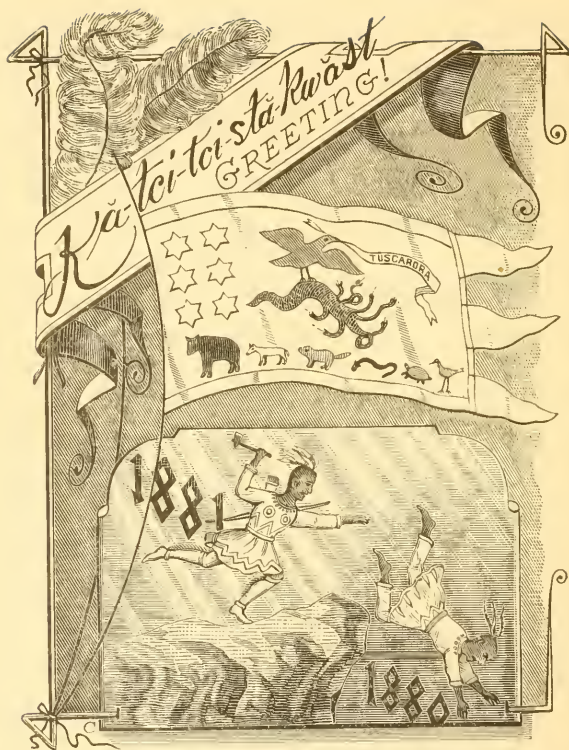 Kă-tci-tci-stă-kwăst
GREETING!
TUSCARORA
1881
1880
C